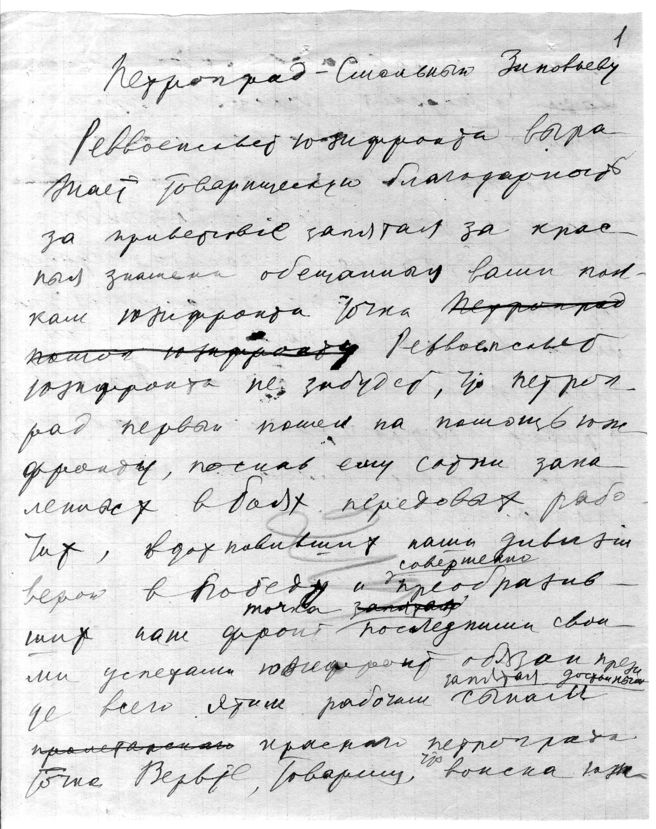 1
Петроград – Смольный Зиновьеву
Реввоенсовет южфронта выра-
жает товарищескую благодарность
за приветствие запятая за крас-
ныя знамена обещанныя вами пол-
кам южфронта точка Петроград
пошол южфронту Реввоенсовет
южфронта не забудет, что петрог-
рад первый пошел на помощь юж-
фронту, послав ему сотни зака-
ленных в боях передовых рабо-
чих, вдохновивших наши дивизии
совершенно
верою в победу и преобразив-
точка запятая
ших наш фронт последними свои-
ми успехами южфронт обязан преж
запятая достойным
де всего этим рабочим сынам
пролетарского красного петрограда
точка Верьте, товарищ, что войска юж-